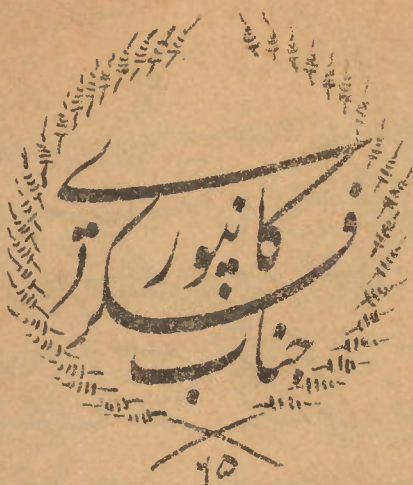 جناب
فکری
کانپوری